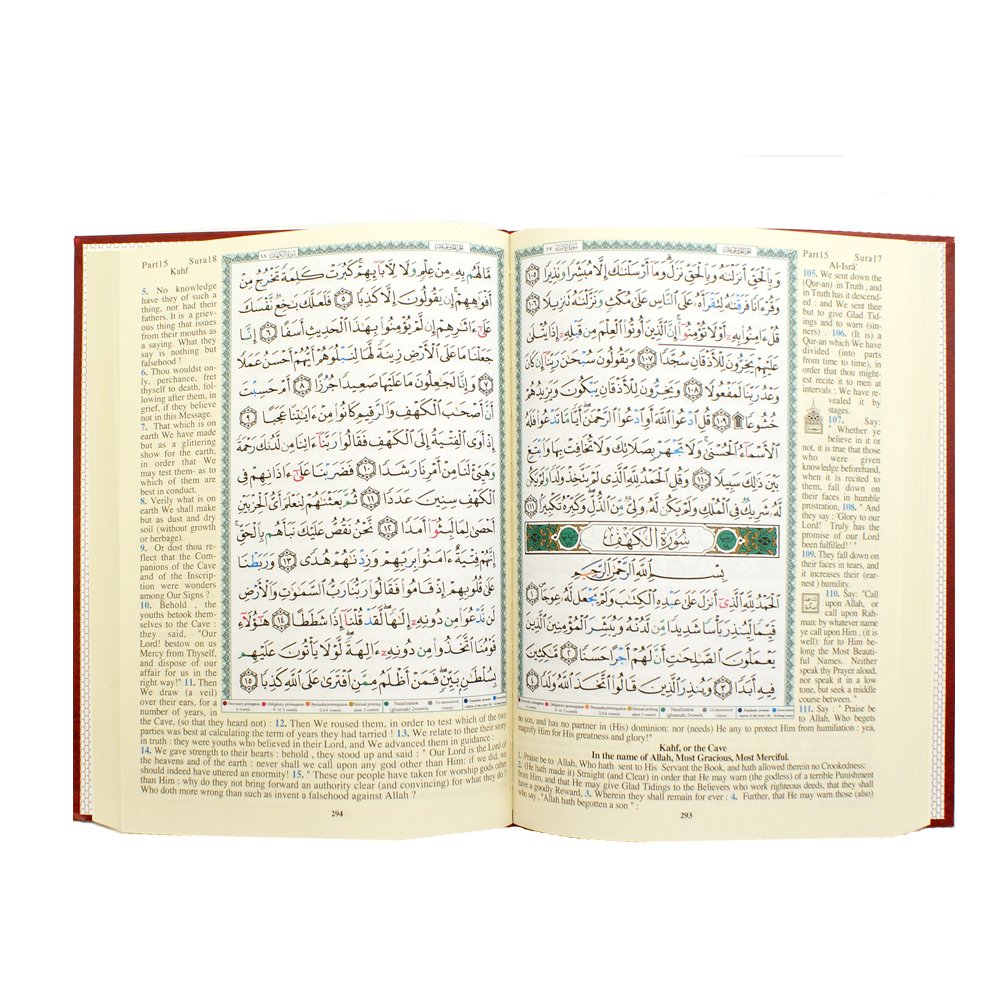 Part15 Sura17
Al-Isrâ'
وَبِٱلْحَقِّ أَنزَلْنَٰهُ وَبِٱلْحَقِّ نَزَلَ ۗ وَمَآ أَرْسَلْنَٰكَ إِلَّا مُبَشِّرًا وَنَذِيرًا ۝١٠٥
وَقُرْءَانًا فَرَقْنَٰهُ لِتَقْرَأَهُۥ عَلَى ٱلنَّاسِ عَلَىٰ مُكْثٍ وَنَزَّلْنَٰهُ تَنزِيلًا ۝١٠٦
قُلْ ءَامِنُوا۟ بِهِۦٓ أَوْ لَا تُؤْمِنُوٓا۟ ۚ إِنَّ ٱلَّذِينَ أُوتُوا۟ ٱلْعِلْمَ مِن قَبْلِهِۦٓ إِذَا يُتْلَىٰ
عَلَيْهِمْ يَخِرُّونَ لِلْأَذْقَانِ سُجَّدًا ۝١٠٧ وَيَقُولُونَ سُبْحَٰنَ رَبِّنَآ إِن كَانَ
وَعْدُ رَبِّنَا لَمَفْعُولًا ۝١٠٨ وَيَخِرُّونَ لِلْأَذْقَانِ يَبْكُونَ وَيَزِيدُهُمْ
خُشُوعًا ۩ ۝١٠٩ قُلِ ٱدْعُوا۟ ٱللَّهَ أَوِ ٱدْعُوا۟ ٱلرَّحْمَٰنَ ۖ أَيًّا مَّا تَدْعُوا۟ فَلَهُ
ٱلْأَسْمَآءُ ٱلْحُسْنَىٰ ۚ وَلَا تَجْهَرْ بِصَلَاتِكَ وَلَا تُخَافِتْ بِهَا وَٱبْتَغِ
بَيْنَ ذَٰلِكَ سَبِيلًا ۝١١٠ وَقُلِ ٱلْحَمْدُ لِلَّهِ ٱلَّذِى لَمْ يَتَّخِذْ وَلَدًا وَلَمْ يَكُن
لَّهُۥ شَرِيكٌ فِى ٱلْمُلْكِ وَلَمْ يَكُن لَّهُۥ وَلِىٌّ مِّنَ ٱلذُّلِّ ۖ وَكَبِّرْهُ تَكْبِيرًۢا ۝١١١
سُورَةُ الكَهْفِ
بِسْمِ ٱللَّهِ ٱلرَّحْمَٰنِ ٱلرَّحِيمِ
ٱلْحَمْدُ لِلَّهِ ٱلَّذِىٓ أَنزَلَ عَلَىٰ عَبْدِهِ ٱلْكِتَٰبَ وَلَمْ يَجْعَل لَّهُۥ عِوَجَا ۜ ۝١
قَيِّمًا لِّيُنذِرَ بَأْسًا شَدِيدًا مِّن لَّدُنْهُ وَيُبَشِّرَ ٱلْمُؤْمِنِينَ ٱلَّذِينَ
يَعْمَلُونَ ٱلصَّٰلِحَٰتِ أَنَّ لَهُمْ أَجْرًا حَسَنًا ۝٢ مَّٰكِثِينَ
فِيهِ أَبَدًا ۝٣ وَيُنذِرَ ٱلَّذِينَ قَالُوا۟ ٱتَّخَذَ ٱللَّهُ وَلَدًا ۝٤
105. We sent down the
(Qur-an) in Truth , and
in Truth has it descend-
ed : and We sent thee
but to give Glad Tid-
ings and to warn (sin-
ners) . 106. (It is) a
Qur-an which We have
divided (into parts
from time to time), in
order that thou might-
est recite it to men at
intervals : We have re-
vealed it by
stages.
107. Say:
" Whether ye
believe in it or
not, it is true that
those who were
given knowledge beforehand,
when it is recited to
them, fall down on
their faces in humble
prostration, 108. " And
they say : 'Glory to our
Lord! Truly has the
promise of our Lord
been fulfilled!' "
109. They fall down on
their faces in tears, and
it increases their (ear-
nest ) humility.
110. Say: "Call
upon Allah, or
call upon Rah-
man: by whatever name
ye call upon Him , (it is
well): for to Him be-
long the Most Beauti-
ful Names. Neither
speak thy Prayer aloud,
nor speak it in a low
tone, but seek a middle
course between. "
111. Say : " Praise be
to Allah, Who begets
no son, and has no partner in (His) dominion: nor (needs) He any to protect Him from humiliation : yea,
magnify Him for His greatness and glory!"
Kahf, or the Cave
In the name of Allah, Most Gracious, Most Merciful.
1. Praise be to Allah, Who hath sent to His Servant the Book, and hath allowed therein no Crookedness:
2. (He hath made it) Straight (and Clear) in order that He may warn (the godless) of a terrible Punishment
from Him, and that He may give Glad Tidings to the Believers who work righteous deeds, that they shall
have a goodly Reward, 3, Wherein they shall remain for ever : 4. Further, that He may warn those (also)
who say , "Allah hath begotten a son " :
293
Part15 Sura18
Kahf
مَّا لَهُم بِهِۦ مِنْ عِلْمٍ وَلَا لِءَابَآئِهِمْ ۚ كَبُرَتْ كَلِمَةً تَخْرُجُ مِنْ
أَفْوَٰهِهِمْ ۚ إِن يَقُولُونَ إِلَّا كَذِبًا ۝٥ فَلَعَلَّكَ بَٰخِعٌ نَّفْسَكَ
عَلَىٰٓ ءَاثَٰرِهِمْ إِن لَّمْ يُؤْمِنُوا۟ بِهَٰذَا ٱلْحَدِيثِ أَسَفًا ۝٦ إِنَّا
جَعَلْنَا مَا عَلَى ٱلْأَرْضِ زِينَةً لَّهَا لِنَبْلُوَهُمْ أَيُّهُمْ أَحْسَنُ عَمَلًا
۝٧ وَإِنَّا لَجَٰعِلُونَ مَا عَلَيْهَا صَعِيدًا جُرُزًا ۝٨ أَمْ حَسِبْتَ
أَنَّ أَصْحَٰبَ ٱلْكَهْفِ وَٱلرَّقِيمِ كَانُوا۟ مِنْ ءَايَٰتِنَا عَجَبًا ۝٩
إِذْ أَوَى ٱلْفِتْيَةُ إِلَى ٱلْكَهْفِ فَقَالُوا۟ رَبَّنَآ ءَاتِنَا مِن لَّدُنكَ رَحْمَةً
وَهَيِّئْ لَنَا مِنْ أَمْرِنَا رَشَدًا ۝١٠ فَضَرَبْنَا عَلَىٰٓ ءَاذَانِهِمْ فِى
ٱلْكَهْفِ سِنِينَ عَدَدًا ۝١١ ثُمَّ بَعَثْنَٰهُمْ لِنَعْلَمَ أَىُّ ٱلْحِزْبَيْنِ
أَحْصَىٰ لِمَا لَبِثُوٓا۟ أَمَدًا ۝١٢ نَّحْنُ نَقُصُّ عَلَيْكَ نَبَأَهُم بِٱلْحَقِّ ۚ
إِنَّهُمْ فِتْيَةٌ ءَامَنُوا۟ بِرَبِّهِمْ وَزِدْنَٰهُمْ هُدًى ۝١٣ وَرَبَطْنَا
عَلَىٰ قُلُوبِهِمْ إِذْ قَامُوا۟ فَقَالُوا۟ رَبُّنَا رَبُّ ٱلسَّمَٰوَٰتِ وَٱلْأَرْضِ
لَن نَّدْعُوَا۟ مِن دُونِهِۦٓ إِلَٰهًا ۖ لَّقَدْ قُلْنَآ إِذًا شَطَطًا ۝١٤ هَٰٓؤُلَآءِ
قَوْمُنَا ٱتَّخَذُوا۟ مِن دُونِهِۦٓ ءَالِهَةً ۖ لَّوْلَا يَأْتُونَ عَلَيْهِم
بِسُلْطَٰنٍۭ بَيِّنٍ ۖ فَمَنْ أَظْلَمُ مِمَّنِ ٱفْتَرَىٰ عَلَى ٱللَّهِ كَذِبًا ۝١٥
5. No knowledge
have they of such a
thing, nor had their
fathers. It is a griev-
ous thing that issues
from their mouths as
a saying. What they
say is nothing but
falsehood !
6. Thou wouldst on-
ly, perchance, fret
thyself to death, fol-
lowing after them, in
grief, if they believe
not in this Message.
7. That which is on
earth We have made
but as a glittering
show for the earth,
in order that We
may test them- as to
which of them are
best in conduct.
8. Verily what is on
earth We shall make
but as dust and dry
soil (without growth
or herbage).
9. Or dost thou re-
flect that the Com-
panions of the Cave
and of the Inscrip-
tion were wonders
among Our Signs ?
10. Behold , the
youths betook them-
selves to the Cave :
they said, "Our
Lord! bestow on us
Mercy from Thyself,
and dispose of our
affair for us in the
right way!" 11. Then
We draw (a veil)
over their ears, for a
number of years, in
the Cave, (so that they heard not) : 12. Then We roused them, in order to test which of the two
parties was best at calculating the term of years they had tarried ! 13. We relate to thee their story
in truth : they were youths who believed in their Lord, and We advanced them in guidance :
14. We gave strength to their hearts : behold , they stood up and said : " Our Lord is the Lord of
the heavens and of the earth : never shall we call upon any god other than Him: if we did, we
should indeed have uttered an enormity! 15. " These our people have taken for worship gods other
than Him : why do they not bring forward an authority clear (and convincing) for what they do ?
Who doth more wrong than such as invent a falsehood against Allah ?
294